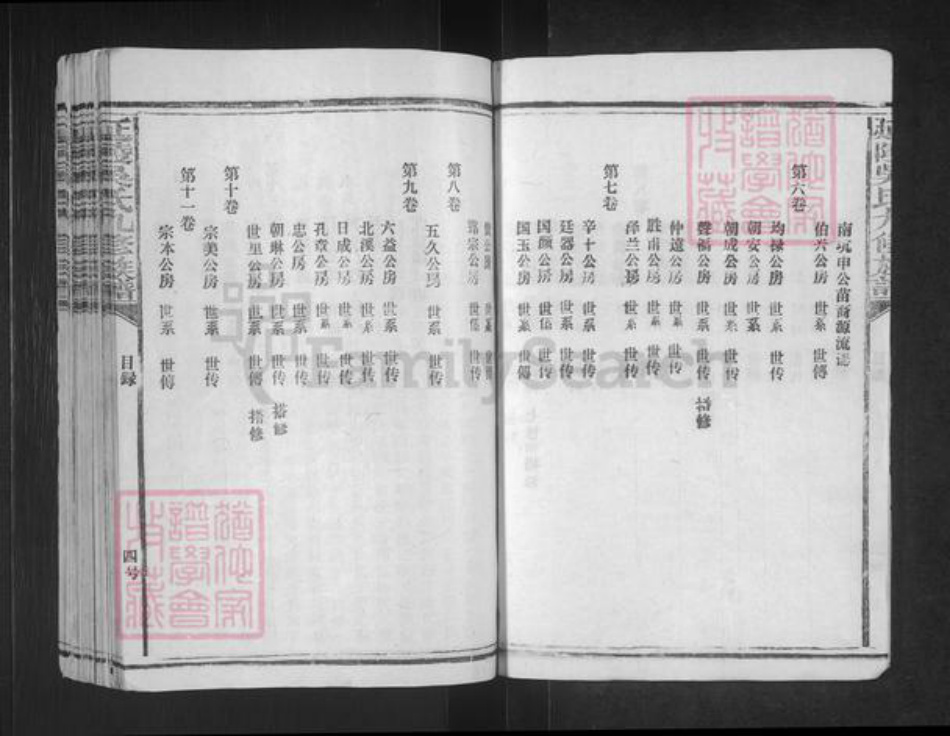 南坑申公苗裔源流
伯兴公房 世系 世傳
第六卷
均禄公房 世系 世传
朝安公房 世系
朝成公房 世系 世传
聲福公房 世系 世传 搭修
仲遠公房 世系 世传
胜甫公房 世系 世传
泽兰公房 世系 世传
第七卷
辛十公房 世系 世传
廷器公房 世系 世传
国颜公房 世系 世传
国玉公房 世系 世傳
公房 世系 世傳
宗公房 世系 世傳
第八卷
五久公房 世系 世传
第九卷
六益公房 世系 世传
北溪公房 世系 世传
日成公房 世系 世传
孔章公房 世系 世传
忠公房 世系 世传
朝琳公房 世系 世传 搭修
世里公房 世系 世傳 搭修
第十卷
宗美公房 世系 世传
第十一卷
宗本公房 世系 世傳
目録
四号
吴氏九修族譜
FamilySearch
譜學會
收藏